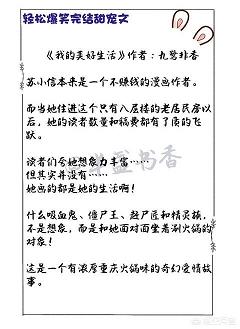 轻松爆笑完结甜宠文
《我的美好生活》作者：九鹭非香
苏小信本来是一个不赚钱的漫画作者。
而当她住进这个只有八层楼的老居民房以
后，她的读者数量和稿费都有了质的飞
跃。
读者们夸她想象力丰富……
但其实并没有……
她画的都是她的生活啊！
什么吸血鬼、僵尸王、赶尸匠和精灵族，
不是想象，而是和她面对面坐着涮火锅的
对象！
这是一个有浓厚重庆火锅味的奇幻爱情故
事。